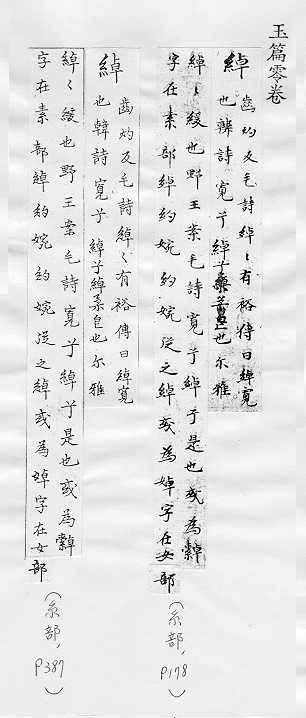 玉篇零卷
綽 齒灼反毛詩綽〻有裕傳曰綽寬
也韓詩寬兮綽兮綽柔皃也尔雅
綽〻緩也野王案毛詩寬兮綽兮是也或為繛
字在素部綽約婉約婉從之綽或為婥字在女
部
(糸部, P178)
綽 齒灼反毛詩綽〻有裕傳曰綽寬
也韓詩寬兮綽兮綽柔皃也尔雅
綽〻緩也野王案毛詩寬兮綽兮是也或為繛
字在素部綽約婉約婉從之綽或為婥字在女
部
(糸部, P387)